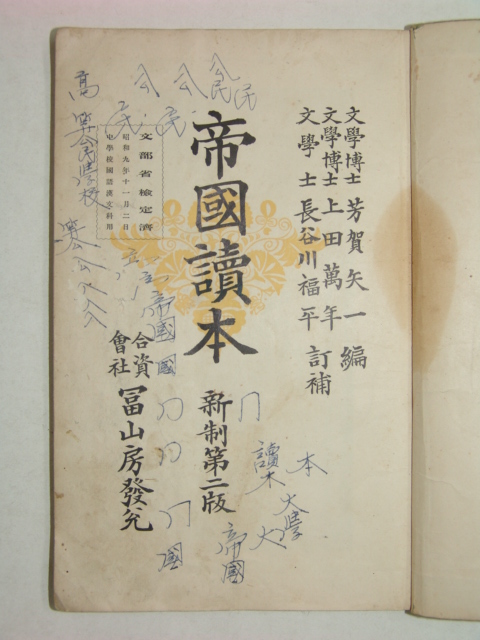 文學博士 芳賀矢一 編
文學博士 上田萬年
文學士 長谷川福平 訂補
帝國讀本
新制第二版
文部省檢定濟
昭和九年十一月二日
中學校國語漢文科用
合資會社 冨山房發兌
民
公
公
民
民
民
高
公民學校
公
帝國
國
國
本
讀本
大學
大
帝國